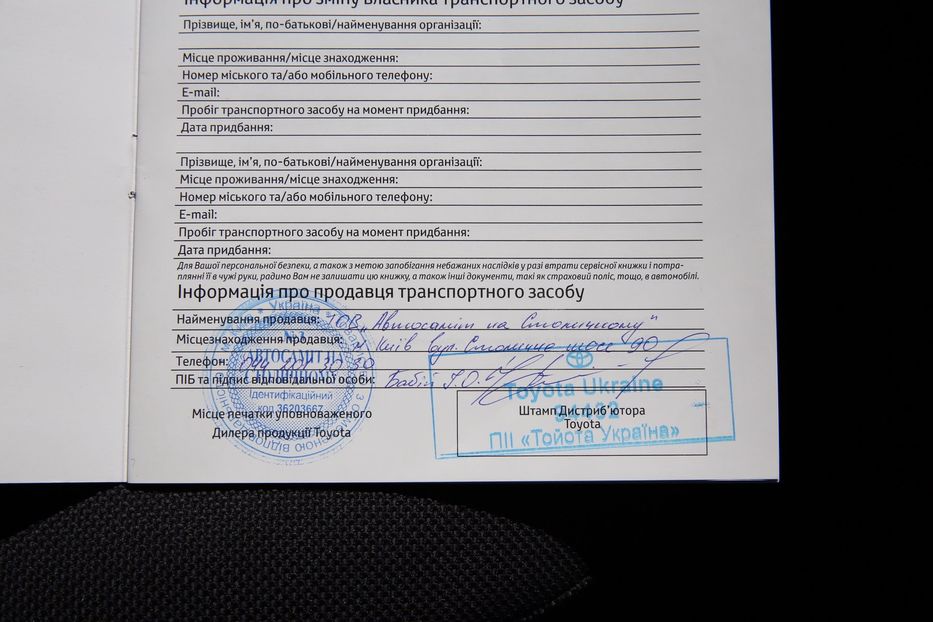 Інформація про зміну власника транспортного засобу
Прізвище, ім'я, по-батькові/найменування організації:
Місце проживання/місце знаходження:
Номер міського та/або мобільного телефону:
E-mail:
Пробіг транспортного засобу на момент придбання:
Дата придбання:
Прізвище, ім'я, по-батькові/найменування організації:
Місце проживання/місце знаходження:
Номер міського та/або мобільного телефону:
E-mail:
Пробіг транспортного засобу на момент придбання:
Дата придбання:
Для Вашої персональної безпеки, а також з метою запобігання небажаних наслідків у разі втрати сервісної книжки і потра-
плянні її в чужі руки, радимо Вам не залишати цю книжку, а також інші документи, такі як страховий поліс, тощо, в автомобілі.
Інформація про продавця транспортного засобу
Найменування продавця: ТОВ "Автосаміт на Столичному"
Місцезнаходження продавця: м Київ вул. Столичне шосе 90
Телефон: 044 201 30 30
ПІБ та підпис відповідальної особи: Бабій Т.О.
Україна
№3
АВТОСАМІТ НА
СТОЛИЧНОМУ
Ідентифікаційний
код 36203667
Місце печатки уповноваженого
Дилера продукції Toyota
Toyota Ukraine
Штамп Дистриб'ютора
Toyota
ПІІ «Тойота Україна»